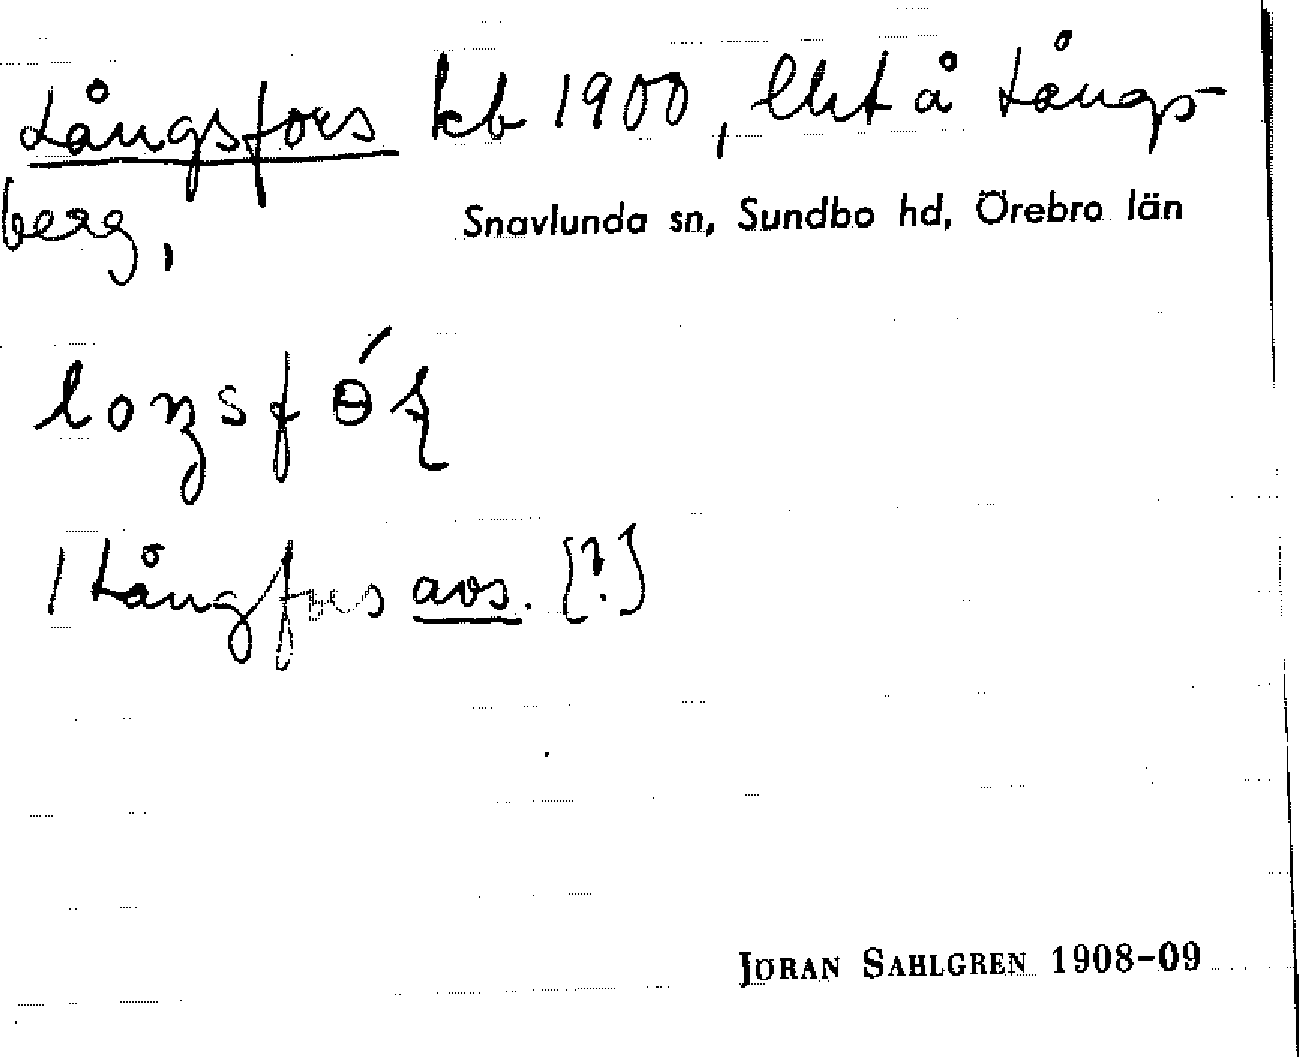 Långsfors kb 1900, lht å Långs-
berg,
Snavlunda sn, Sundbo hd, Örebro län
| Långfors avs. [?]
JÖRAN SAHLGREN 1908-09